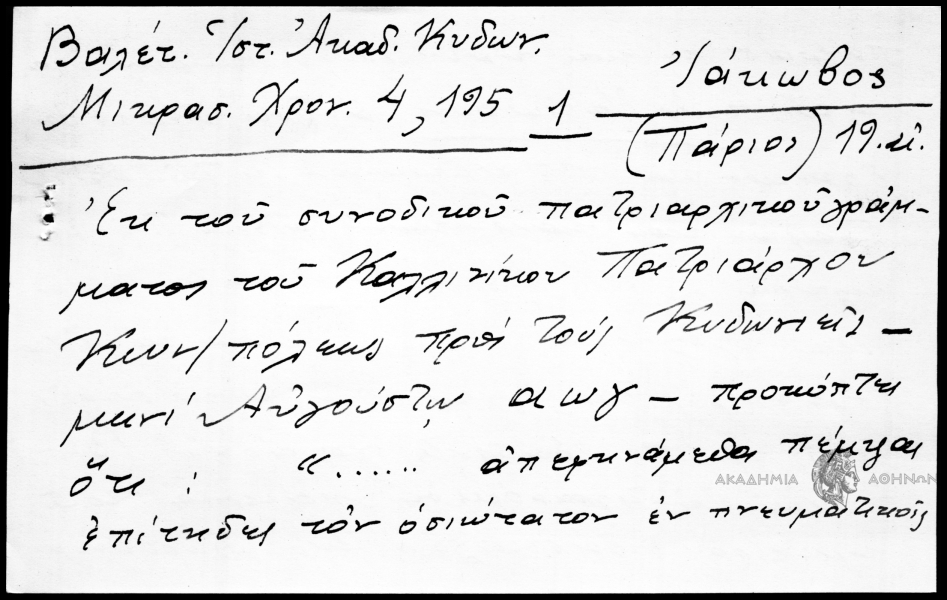 Βαλέτ. Ἱστ. Ἀκαδ. Κυδων.
Μικρασ. Χρον. 4, 195 1
Ἰάκωβος
(Πάριος) 19. αἰ.
Ἐκ τοῦ συνοδικοῦ πατριαρχικοῦ γράμ-
ματος τοῦ Καλλινίκου Πατριάρχου
Κων/πόλεως πρὸς τοὺς Κυδωνιεῖς –
μηνὶ Αὐγούστῳ αωγ – προκύπτει
ὅτι : "...... ἀπεκρινάμεθα πέμψαι
ΑΚΑΔΗΜΙΑ ΑΘΗΝΩΝ
ἐπίτηδες τὸν ὁσιώτατον ἐν πνευματικοῖς